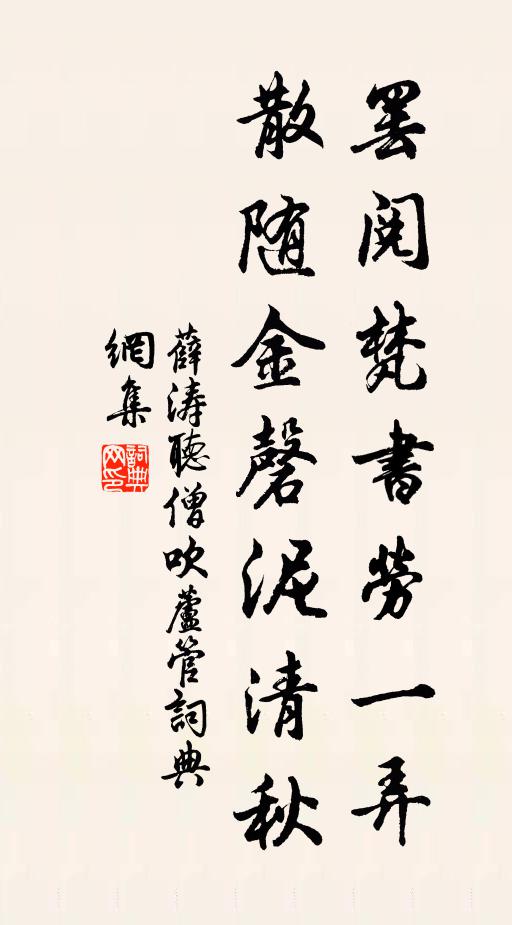 罢阅梵書勞一弄
散随金磬泥清秋
薛涛聽僧吹蘆管詞典
網集
詞典
网印